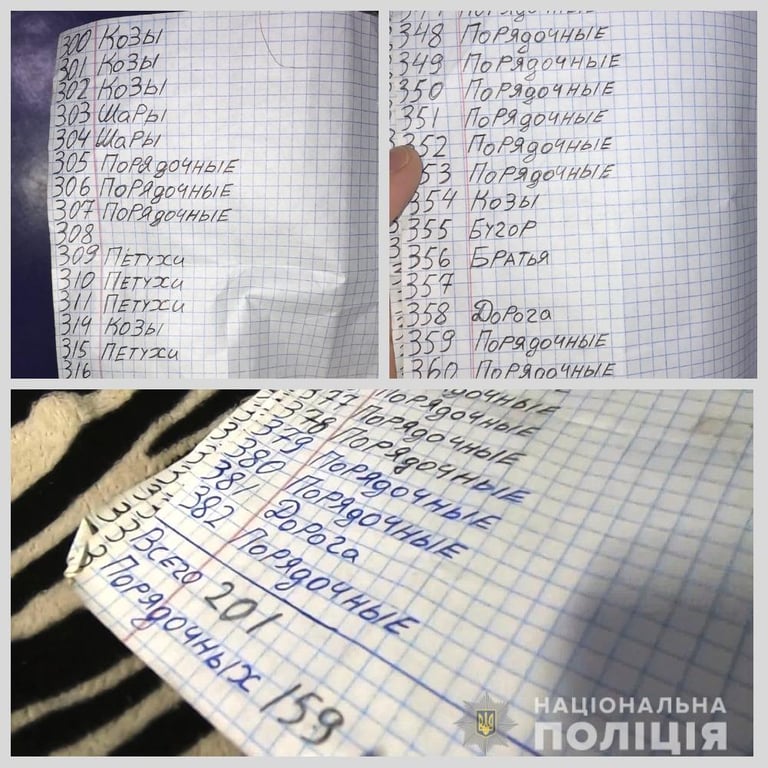 300 Козы
301 Козы
302 Козы
303 Шары
304 Шары
305 Порядочные
306 Порядочные
307 Порядочные
308
309 Петухи
310 Петухи
311 Петухи
314 Козы
315 Петухи
316
348 Порядочные
349 Порядочные
350 Порядочные
351 Порядочные
352 Порядочные
353 Порядочные
354 Козы
355 Бугор
356 Братья
357
358 Дорога
359 Порядочные
360 Порядочные
377 Порядочные
378 Порядочные
379 Порядочные
380 Порядочные
381 Дорога
382 Порядочные
Всего 201
Порядочных 159
НАЦІОНАЛЬНА
ПОЛІЦІЯ